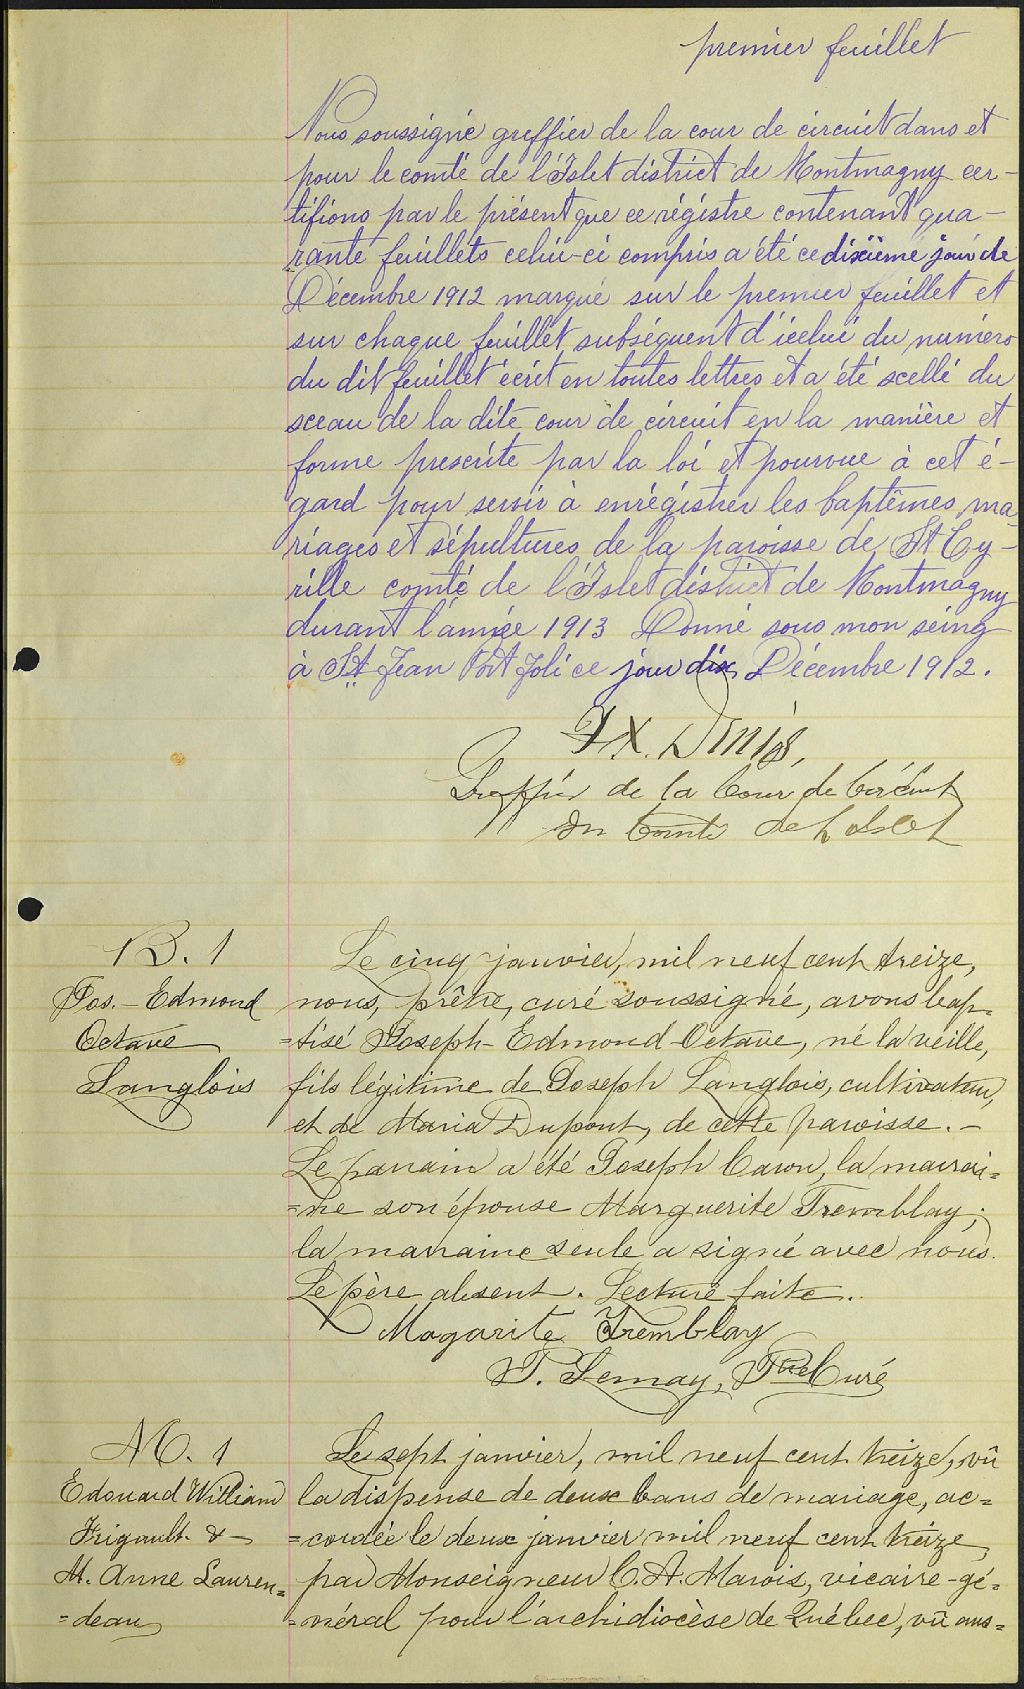 premier feuillet
Nous soussigné greffier de la cour de circuit dans et
pour le comté de l'Islet district de Montmagny cer-
tifions par le présent que ce régistre contenant qua-
rante feuillets celui-ci compris a été ce dixième jour de
Décembre 1912 marqué sur le premier feuillet et
sur chaque feuillet subséquent d'icelui du numéro
du dit feuillet écrit en toutes lettres et a été scellé du
sceau de la dite cour de circuit en la manière et
forme prescrite par la loi et pourvue à cet é-
gard pour servir à enrégistrer les baptêmes, ma-
riages et sépultures de la paroisse de St Cy-
rille comté de l'Islet district de Montmagny
durant l'année 1913 Donné sous mon seing
à St Jean Port Joli ce jour dix Décembre 1912.
F X. Denis,
Greffier de la Cour de Circuit
du Comté de L'Islet
B. 1
Jos. - Edmond
Octave
Langlois
Le cinq janvier, mil neuf cent treize,
nous, prêtre, curé soussigné, avons bap-
=tisé Joseph-Edmond-Octave, né la veille,
fils légitime de Joseph Langlois, cultivateur,
et de Maria Dupont, de cette paroisse. -
Le parrain a été Joseph Caron, la marrai=
=ne son épouse Marguerite Tremblay;
la marraine seule a signé avec nous.
Le père absent. Lecture faite.
Magarite Tremblay
P. Lemay, Ptre Curé
M. 1
Edouard William
Frigault &
M. Anne Lauren=
=deau
Le sept janvier, mil neuf cent treize, vû
la dispense de deux bans de mariage, ac=
=cordée le deux janvier mil neuf cent treize,
par Monseigneur C. A. Marois, vicaire-gé=
=néral pour l'archidiocèse de Québec, vû aus=